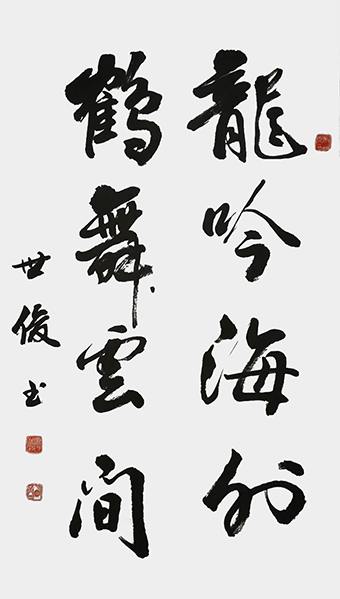 龍吟海外
鶴舞雲間
世俊书